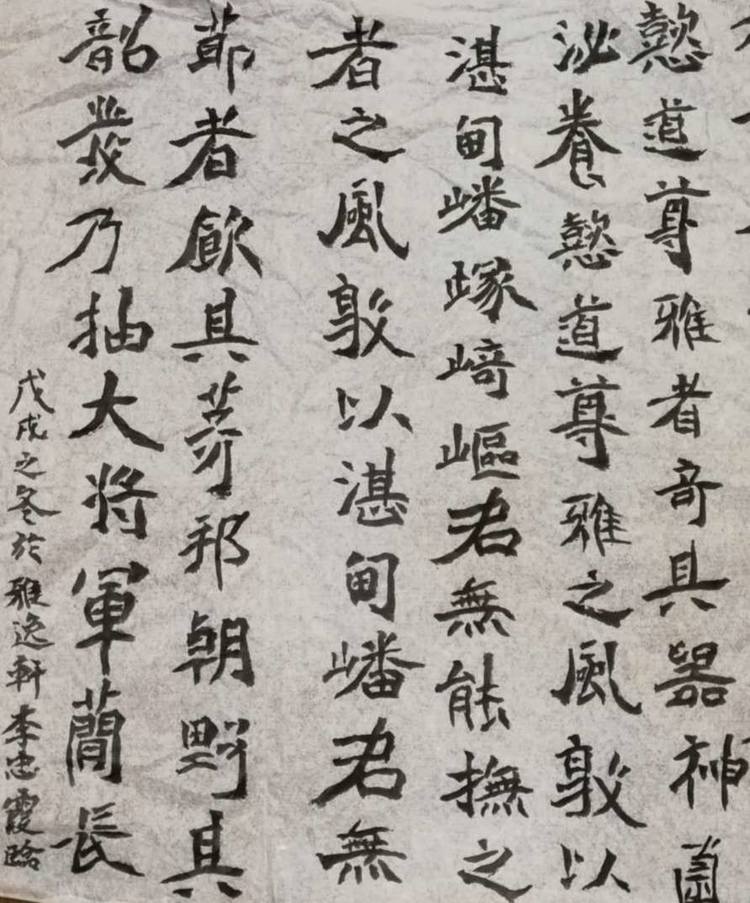 懿道尊雅者奇具器神
泌養懿道尊雅之風敦以
湛甸嶓嵹崎嶇君無能撫之
者之風敦以湛甸嶓君無
節者飲具芽邦朝野具
韶叢乃抽大将軍蕳長
戊戌之冬於雅逸軒李忠霞臨